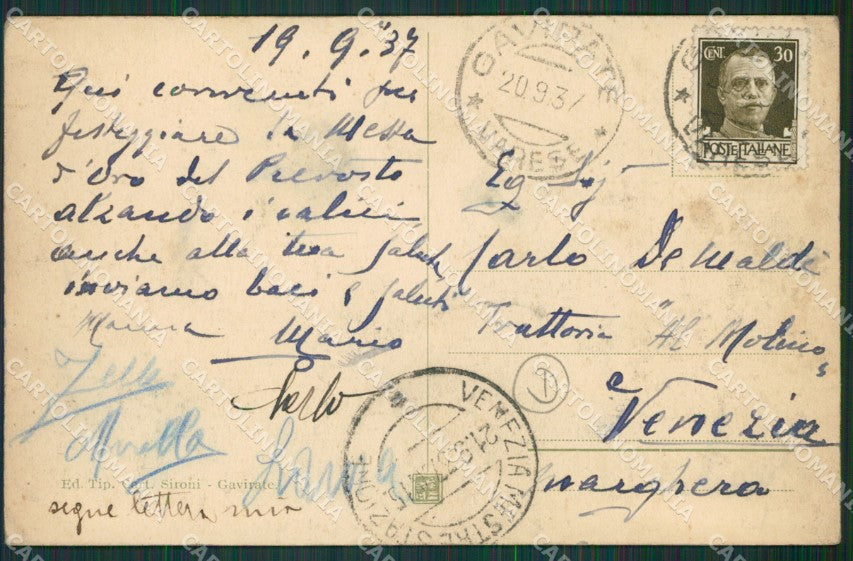 19.9.37
Qui convenuti per
festeggiare la Messa
d'oro del Prevosto
alzando i calici
anche alla tua salute
inviamo baci e saluti
Mamma Mario
Carlo
segue lettera mia
Ed. Tip. Cart. Sironi - Gavirate
GAVIRATE
20.9.37
VARESE
CENT. 30
POSTE ITALIANE
Eg Sig
Carlo De Maldè
Trattoria "Al Molino"
Venezia
Marghera
1
VENEZIA MESTRE STAZIONE
21.9.3
CARTOLINOMANIA